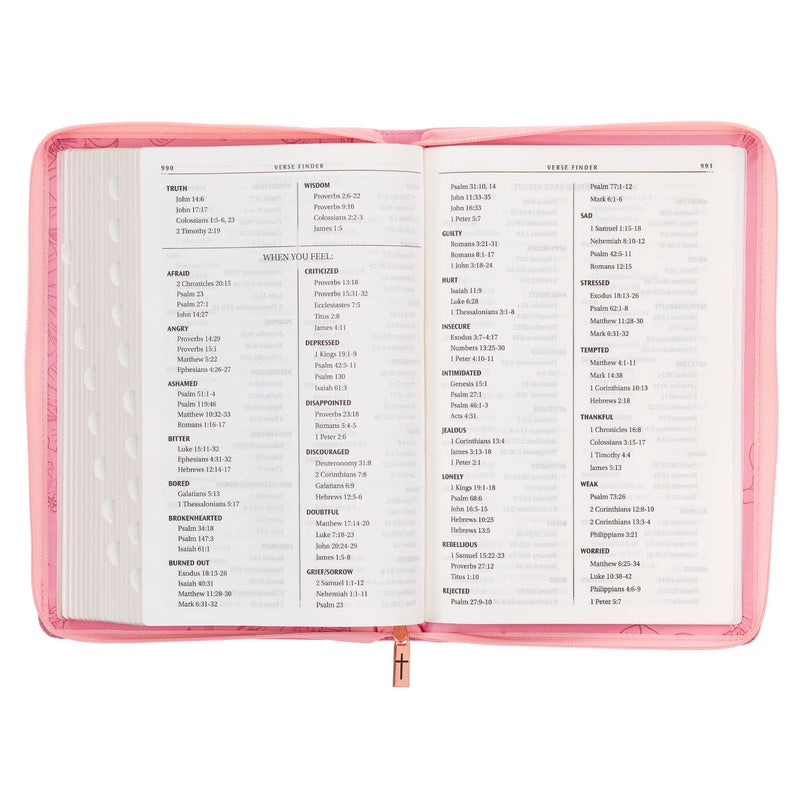 990
VERSE FINDER
TRUTH
John 14:6
John 17:17
Colossians 1:5-6, 23
2 Timothy 2:19
WISDOM
Proverbs 2:6-22
Proverbs 9:10
Colossians 2:2-3
James 1:5
WHEN YOU FEEL:
AFRAID
2 Chronicles 20:15
Psalm 23
Psalm 27:1
John 14:27
ANGRY
Proverbs 14:29
Proverbs 15:1
Matthew 5:22
Ephesians 4:26-27
ASHAMED
Psalm 51:1-4
Psalm 119:46
Matthew 10:32-33
Romans 1:16-17
BITTER
Luke 15:11-32
Ephesians 4:31-32
Hebrews 12:14-17
BORED
Galatians 5:13
1 Thessalonians 5:17
BROKENHEARTED
Psalm 34:18
Psalm 147:3
Isaiah 61:1
BURNED OUT
Exodus 18:13-26
Isaiah 40:31
Matthew 11:28-30
Mark 6:31-32
CRITICIZED
Proverbs 13:18
Proverbs 15:31-32
Ecclesiastes 7:5
Titus 2:8
James 4:11
DEPRESSED
1 Kings 19:1-9
Psalm 42:5-11
Psalm 130
Isaiah 61:3
DISAPPOINTED
Proverbs 23:18
Romans 5:4-5
1 Peter 2:6
DISCOURAGED
Deuteronomy 31:8
2 Corinthians 7:6
Galatians 6:9
Hebrews 12:5-6
DOUBTFUL
Matthew 17:14-20
Luke 7:18-23
John 20:24-29
James 1:5-8
GRIEF/SORROW
2 Samuel 1:1-12
Nehemiah 1:1-11
Psalm 23
VERSE FINDER
991
Psalm 31:10, 14
John 11:33-35
John 16:33
1 Peter 5:7
GUILTY
Romans 3:21-31
Romans 8:1-17
1 John 3:18-24
HURT
Isaiah 11:9
Luke 6:28
1 Thessalonians 3:1-8
INSECURE
Exodus 3:7-4:17
Numbers 13:25-30
1 Peter 4:10-11
INTIMIDATED
Genesis 15:1
Psalm 27:1
Psalm 46:1-3
Acts 4:31
JEALOUS
1 Corinthians 13:4
James 3:13-18
1 Peter 2:1
LONELY
1 Kings 19:1-18
Psalm 68:6
John 16:5-15
Hebrews 10:25
Hebrews 13:5
REBELLIOUS
1 Samuel 15:22-23
Proverbs 27:12
Titus 1:10
REJECTED
Psalm 27:9-10
Psalm 77:1-12
Mark 6:1-6
SAD
1 Samuel 1:15-18
Nehemiah 8:10-12
Psalm 42:5-11
Romans 12:15
STRESSED
Exodus 18:13-26
Psalm 62:1-8
Matthew 11:28-30
Mark 6:31-32
TEMPTED
Matthew 4:1-11
Mark 14:38
1 Corinthians 10:13
Hebrews 2:18
THANKFUL
1 Chronicles 16:8
Colossians 3:15-17
1 Timothy 4:4
James 5:13
WEAK
Psalm 73:26
2 Corinthians 12:8-10
2 Corinthians 13:3-4
Philippians 3:21
WORRIED
Matthew 6:25-34
Luke 10:38-42
Philippians 4:6-9
1 Peter 5:7